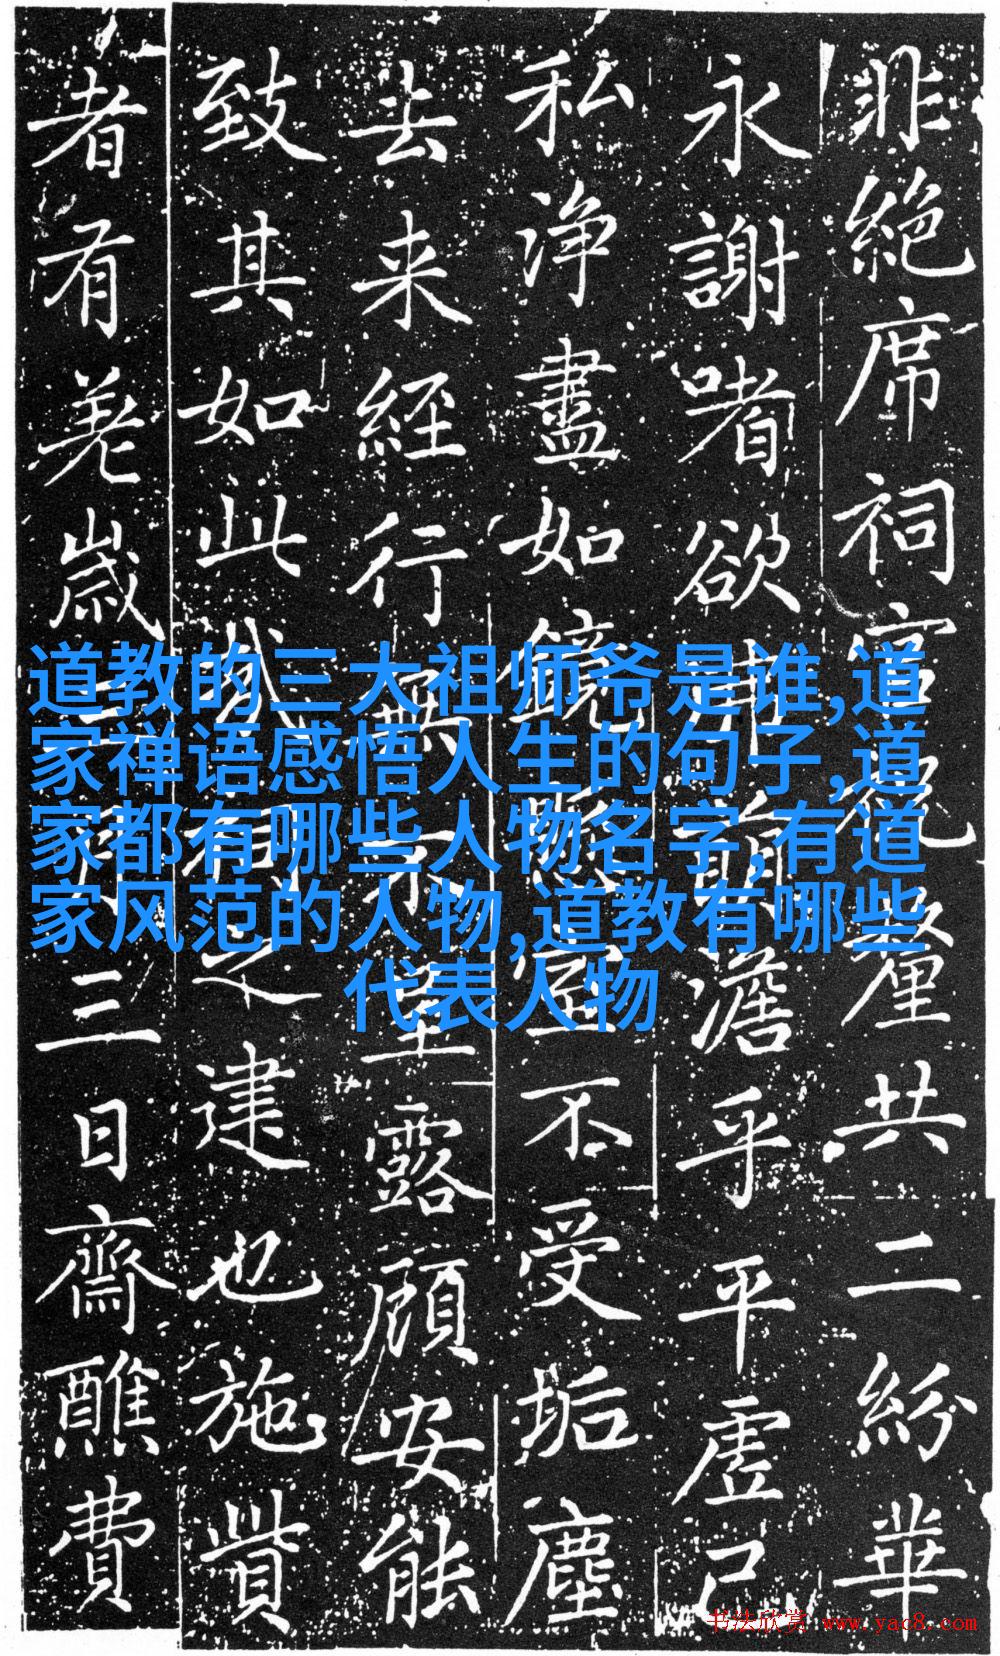 非絕席祠官祝釐共二紛華
永謝嗜欲澹乎平虛己
私淨盡如鏡懸空不受垢塵
去来経行無不坐露顧安能
致其如此我相之建也施貲
者有羌歲三日齋醮費
道教的三大祖师爷是谁,道
家禅语感悟人生的句子,道
家都有哪些人物名字,有道
家风范的人物,道教有哪些
代表人物
书法欣赏 www.yac8.com